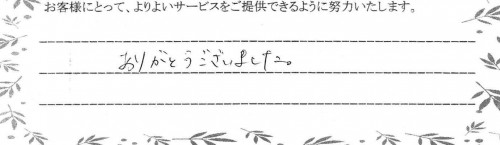 お客様にとって、よりよいサービスをご提供できるように努力いたします。
ありがとうございました。